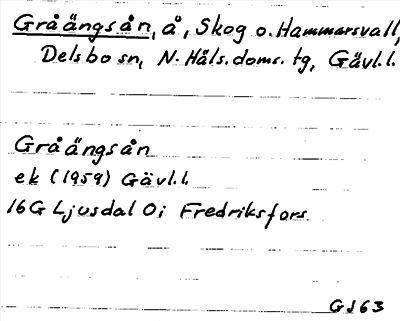 Gråängsån, å, Skog o. Hammarsvall,
Delsbo sn, N. Häls. doms. tg, Gävl.l.
Gråängsån
ek (1959) Gävl.l.
16G Ljusdal Oi Fredriksfors
GJ63